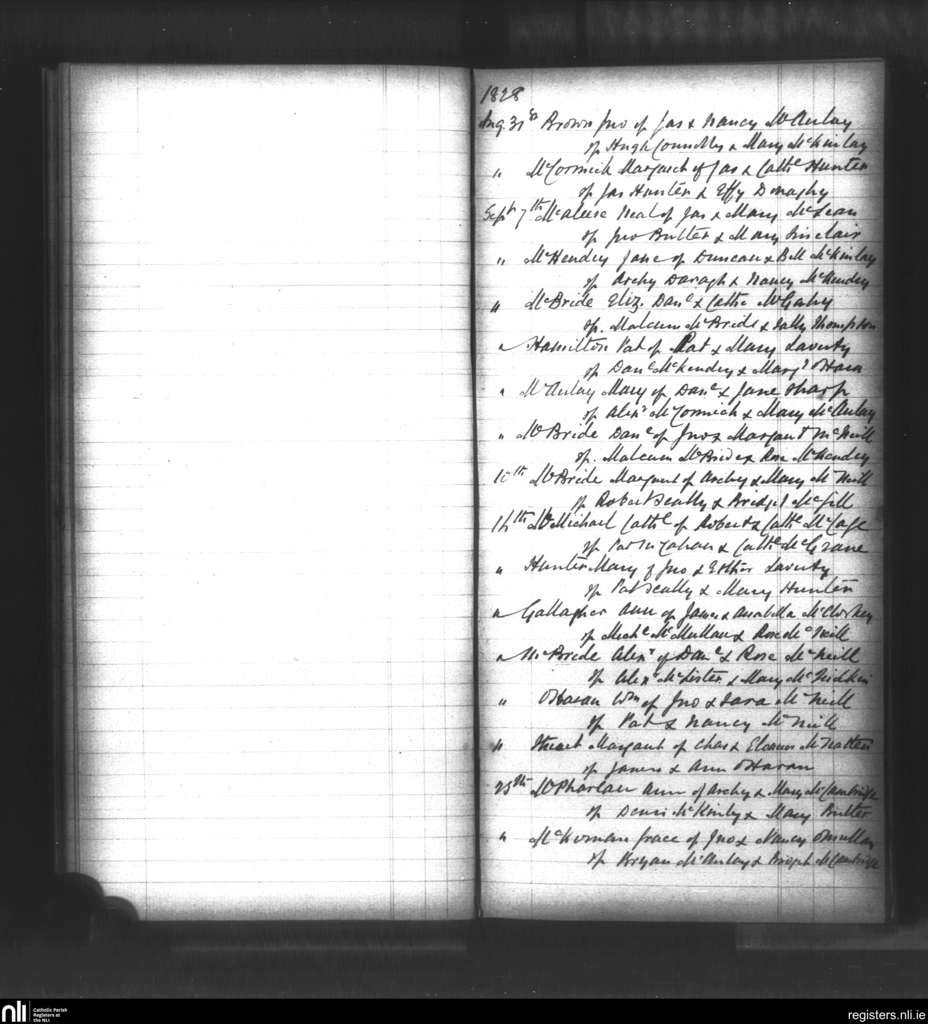 1828
Aug. 31st Brown Jno of Jas & Nancy McAulay
Sp Hugh Connolly & Mary McKinlay
" McCormick Margaret of Jas & Cathe Hunter
Sp Jas Hunter & Effy Donaghy
Sept 7th McAleese Neal of Jas & Mary McLean
Sp Jno Butler & Mary Sinclair
" McHendry Jane of Duncan & Bell McKinlay
Sp Archy Daragh & Nancy McKendry
" McBride Eliz. Danl & Cathe McGahy
Sp. Malcum McBride & Sally Thompson
" Hamilton Pat of Pat & Mary Laverty
Sp Danl McKendry & Margt OHara
" McAulay Mary of Danl & Jane Sharp
Sp Alexr McCormick & Mary McAulay
" McBride Danl of Jno & Margaret McNeill
Sp. Malcum McBride & Rose McKendry
McBride Margaret of Archy & Mary McNeill
Sp Robert Scally & Bridget McGill
14th McMichael Cathe of Robert & Cathe McCage
Sp Pat McCahan & Cathe McGrane
" Hunter Mary of Jno & Esther Laverty
Sp Pat Scally & Mary Hunter
" Gallagher Ann of James & Annabella McCloskey
Sp Michl McMullan & Rose McNeill
" McBride Alexr of Danl & Rose McNeill
Sp Alexr McLister & Mary
" OHaran Wm of Jno & Sara McNeill
Sp Pat & Nancy McNeill
" Stuart Margaret of Chas & Eleanor
Sp James & Ann OHaran
25th McPharlan Ann of Archy & Mary McCambridge
Sp Denis McKinly & Mary Butler
" McKiernan Grace of Jno & Nancy Omullan
Sp Bryan McAulay & Bridget McCambridge
nli
Catholic Parish
Registers at
the NLI
registers.nli.ie